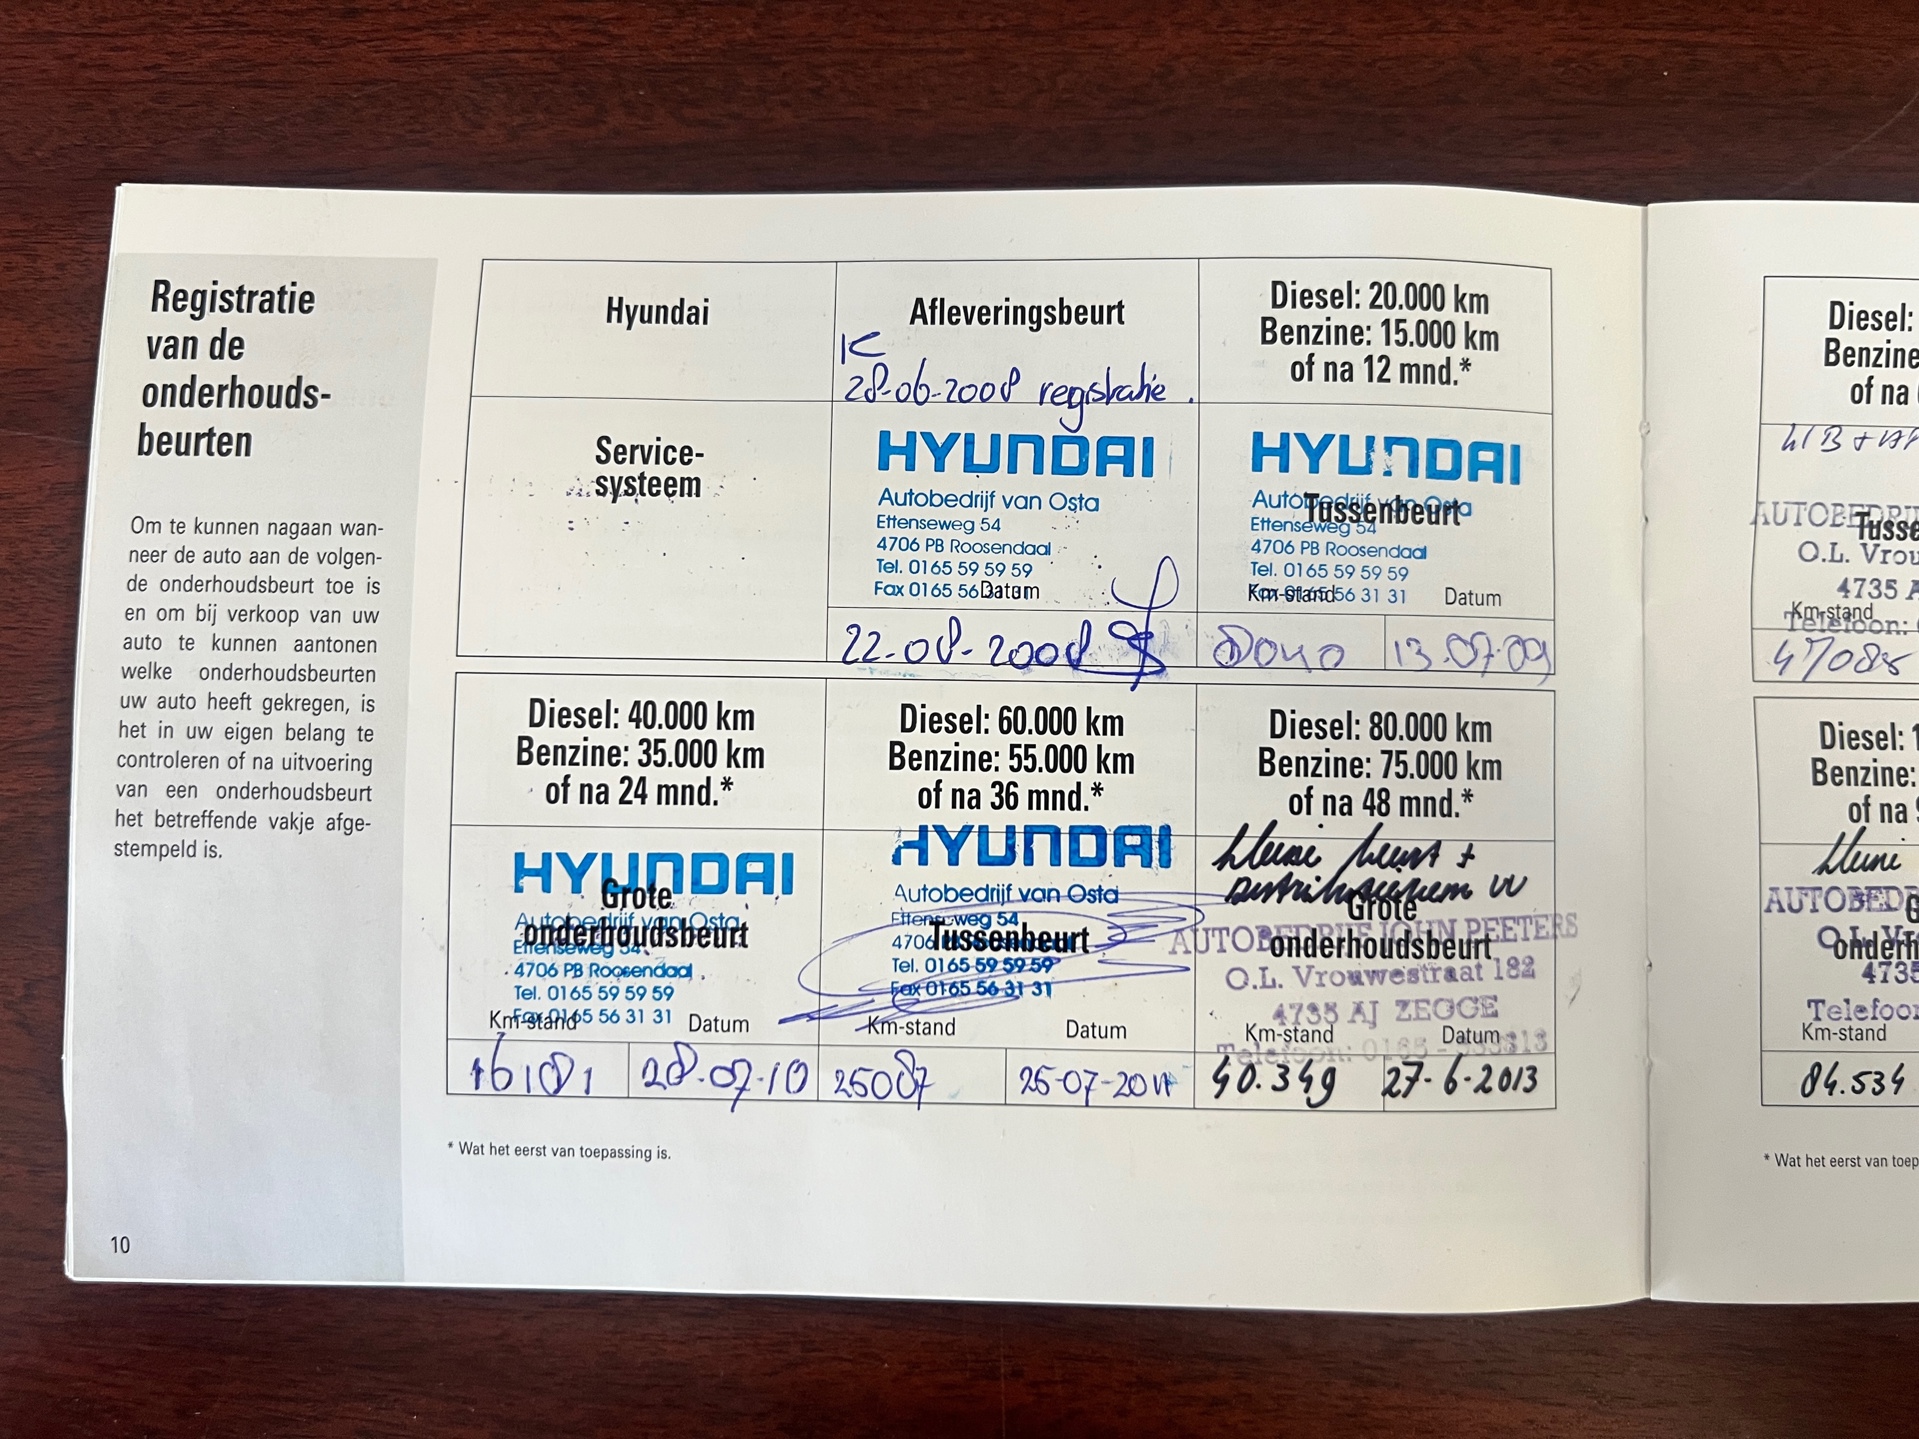 Registratie
van de
onderhouds-
beurten
Om te kunnen nagaan wan-
neer de auto aan de volgen-
de onderhoudsbeurt toe is
en om bij verkoop van uw
auto te kunnen aantonen
welke onderhoudsbeurten
uw auto heeft gekregen, is
het in uw eigen belang te
controleren of na uitvoering
van een onderhoudsbeurt
het betreffende vakje afge-
stempeld is.
10
Hyundai
Service-
systeem
Afleveringsbeurt
28-06-2008 registratie.
HYUNDAI
Autobedrijf van Osta
Ettenseweg 54
4706 PB Roosendaal
Tel. 0165 59 59 59
Fax 0165 56 31 31
Datum
22-08-2008
Diesel: 20.000 km
Benzine: 15.000 km
of na 12 mnd.*
HYUNDAI
Autobedrijf van Osta
Tussenbeurt
Ettenseweg 54
4706 PB Roosendaal
Tel. 0165 59 59 59
Fax 0165 56 31 31
Km-stand Datum
13-07-09
Diesel: 40.000 km
Benzine: 35.000 km
of na 24 mnd.*
HYUNDAI
Grote
onderhoudsbeurt
Autobedrijf van Osta
Ettenseweg 54
4706 PB Roosendaal
Tel. 0165 59 59 59
Fax 0165 56 31 31
Km-stand Datum
16181 28-07-10
Diesel: 60.000 km
Benzine: 55.000 km
of na 36 mnd.*
HYUNDAI
Autobedrijf van Osta
Ettenseweg 54
Tussenbeurt
4706 PB Roosendaal
Tel. 0165 59 59 59
Fax 0165 56 31 31
Km-stand Datum
25087 25-07-2011
Diesel: 80.000 km
Benzine: 75.000 km
of na 48 mnd.*
kleine beurt +
Grote
onderhoudsbeurt
AUTOBEDRIJF JOHN PEETERS
O.L. Vrouwestraat 182
4735 AJ ZEGGE
Telefoon: 0165 -
Km-stand Datum
40.349 27-6-2013
* Wat het eerst van toepassing is.
Diesel:
Benzine
of na
AUTOBEDRIJ
Tusse
O.L. Vrou
4735 A
Km-stand
Telefoon:
47085
Diesel: 1
Benzine:
of na 9
kleine
AUTOBEDR
G
O.L. Vr
onderh
4735
Telefoon
Km-stand
84.534
* Wat het eerst van toep